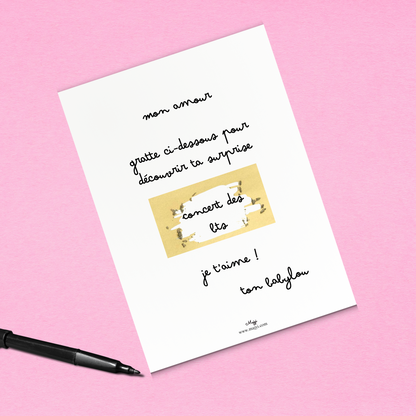 mon amour
gratte ci-dessous pour
découvrir ta surprise
concert des
bts
je t'aime !
ton babylou